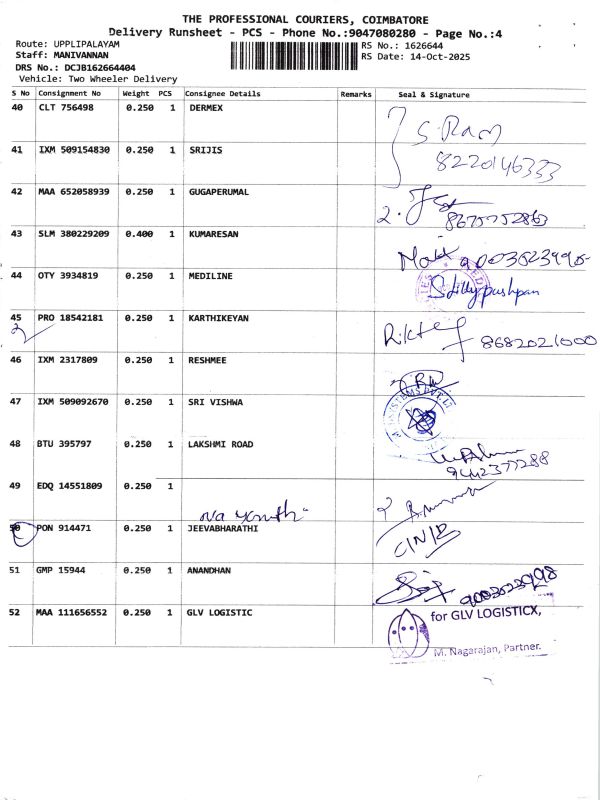 THE PROFESSIONAL COURIERS, COIMBATORE
Delivery Runsheet - PCS - Phone No.:9047080280 - Page No.:4
Route: UPPLIPALAYAM RS No.: 1626644
Staff: MANIVANNAN RS Date: 14-Oct-2025
DRS No.: DCJB162664404
Vehicle: Two Wheeler Delivery
S No Consignment No Weight PCS Consignee Details Remarks Seal & Signature
40 CLT 756498 0.250 1 DERMEX S. Ram
41 IXM 509154830 0.250 1 SRIJIS 8220146333
42 MAA 652058939 0.250 1 GUGAPERUMAL 2.
43 SLM 380229209 0.400 1 KUMARESAN
44 OTY 3934819 0.250 1 MEDILINE S Lilly pushpan
45 PRO 18542181 0.250 1 KARTHIKEYAN 8682021000
46 IXM 2317809 0.250 1 RESHMEE
47 IXM 509092670 0.250 1 SRI VISHWA
48 BTU 395797 0.250 1 LAKSHMI ROAD 9442377288
49 EDQ 14551809 0.250 1
50 PON 914471 0.250 1 JEEVABHARATHI
51 GMP 15944 0.250 1 ANANDHAN
52 MAA 111656552 0.250 1 GLV LOGISTIC
for GLV LOGISTICX,
M. Nagarajan, Partner.